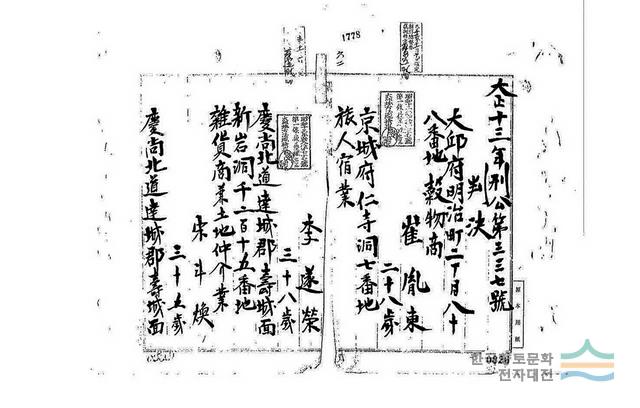 1778
大正十三年刑公第三三七號
判決
大邱府明治町二丁目八十
八番地 穀物商
崔胤東
二十八歲
京城府仁寺洞七番地
旅人宿業
李遂榮
三十八歲
慶尚北道達城郡壽城面
新岩洞千二百十五番地
雜貨商兼土地仲介業
宋斗煥
三十五歲
慶尚北道達城郡壽城面
한국향토문화
전자대전